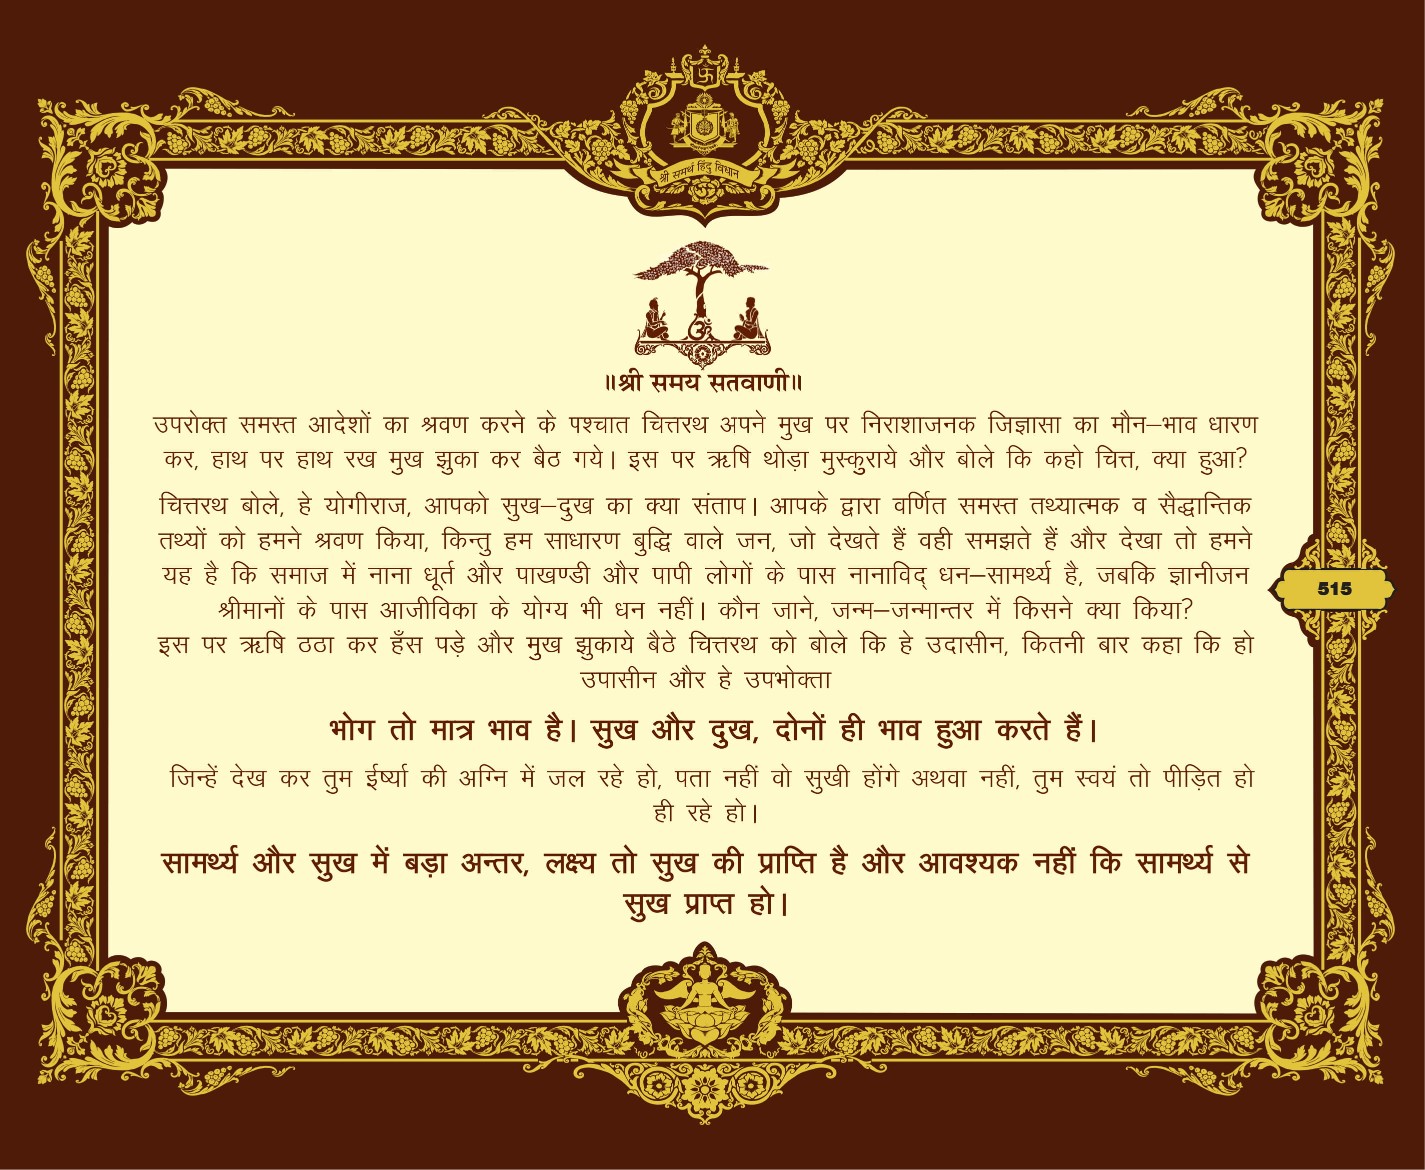 श्री समर्थ हिंदु विधान
॥श्री समय सतवाणी॥
उपरोक्त समस्त आदेशों का श्रवण करने के पश्चात चित्तरथ अपने मुख पर निराशाजनक जिज्ञासा का मौन–भाव धारण
कर, हाथ पर हाथ रख मुख झुका कर बैठ गये। इस पर ऋषि थोड़ा मुस्कुराये और बोले कि कहो चित्त, क्या हुआ?
चित्तरथ बोले, हे योगीराज, आपको सुख–दुख का क्या संताप। आपके द्वारा वर्णित समस्त तथ्यात्मक व सैद्धान्तिक
तथ्यों को हमने श्रवण किया, किन्तु हम साधारण बुद्धि वाले जन, जो देखते हैं वही समझते हैं और देखा तो हमने
यह है कि समाज में नाना धूर्त और पाखण्डी और पापी लोगों के पास नानाविद् धन–सामर्थ्य है, जबकि ज्ञानीजन
श्रीमानों के पास आजीविका के योग्य भी धन नहीं। कौन जाने, जन्म–जन्मान्तर में किसने क्या किया?
इस पर ऋषि ठठा कर हँस पड़े और मुख झुकाये बैठे चित्तरथ को बोले कि हे उदासीन, कितनी बार कहा कि हो
उपासीन और हे उपभोक्ता
भोग तो मात्र भाव है। सुख और दुख, दोनों ही भाव हुआ करते हैं।
जिन्हें देख कर तुम ईर्ष्या की अग्नि में जल रहे हो, पता नहीं वो सुखी होंगे अथवा नहीं, तुम स्वयं तो पीड़ित हो
ही रहे हो।
सामर्थ्य और सुख में बड़ा अन्तर, लक्ष्य तो सुख की प्राप्ति है और आवश्यक नहीं कि सामर्थ्य से
सुख प्राप्त हो।
515